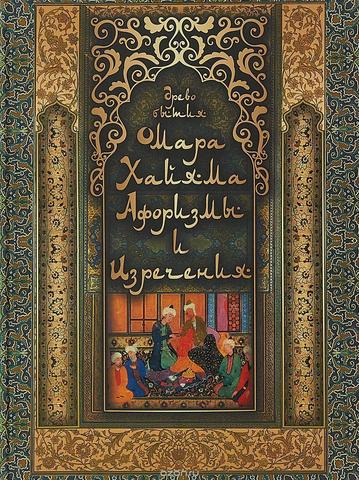 Древо
бытия
Омара
Хайяма
Афоризмы
и
Изречения
ozon.ru